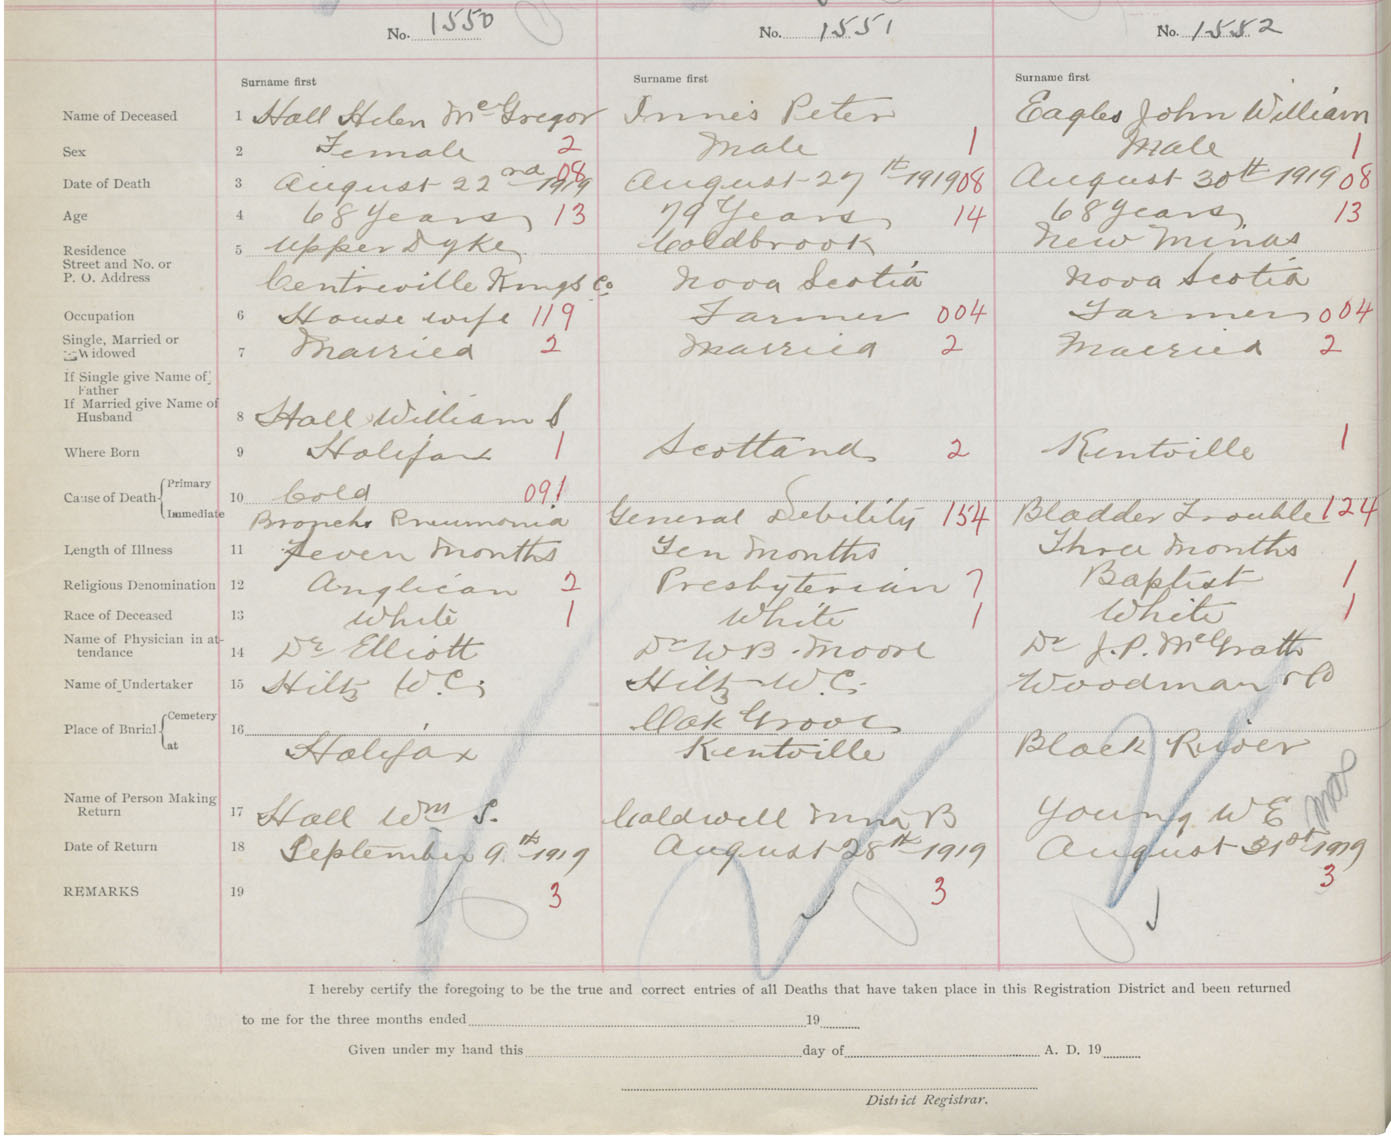 No. 1550 No. 1551 No. 1552
Surname first Surname first Surname first
Name of Deceased 1 Hall Helen McGregor Innis Peter Eagles John William
Sex 2 Female 2 Male 1 Male 1
Date of Death 3 August 22nd 1919 08 August 27th 1919 08 August 30th 1919 08
Age 4 68 Years 13 79 Years 14 68 Years 13
Residence 5 Upper Dyke Coldbrook New Minas
Street and No. or
P. O. Address Centreville Kings Co Nova Scotia Nova Scotia
Occupation 6 House wife 119 Farmer 004 Farmer 004
Single, Married or
Widowed 7 Married 2 Married 2 Married 2
If Single give Name of
Father
If Married give Name of
Husband 8 Hall William S
Where Born 9 Halifax 1 Scotland 2 Kentville 1
Cause of Death Primary 10 Cold 091
Immediate Broncho Pneumonia General Debility 154 Bladder Trouble 124
Length of Illness 11 Seven Months Ten Months Three Months
Religious Denomination 12 Anglican 2 Presbyterian 7 Baptist 1
Race of Deceased 13 White 1 White 1 White 1
Name of Physician in at-
tendance 14 Dr Elliott Dr W B Moore Dr J. P. McGrath
Name of Undertaker 15 Hiltz W. C. Hiltz W. C. Woodman & Co
Place of Burial Cemetery 16 Oak Grove
at Halifax Kentville Black River
Name of Person Making
Return 17 Hall Wm S. Caldwell B Young W E
Date of Return 18 September 9th 1919 August 28th 1919 August 31st 1919
REMARKS 19 3 3 3
I hereby certify the foregoing to be the true and correct entries of all Deaths that have taken place in this Registration District and been returned
to me for the three months ended 19
Given under my hand this day of A. D. 19
District Registrar.